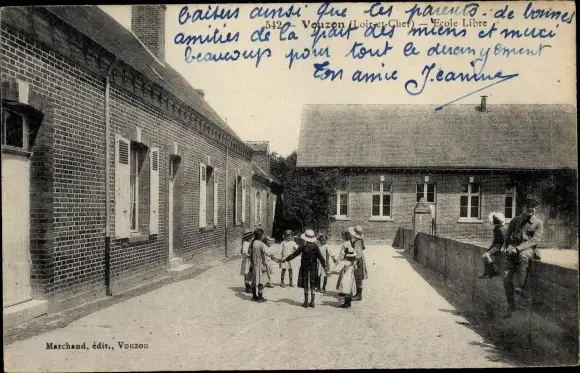 baisers ainsi que tes parents. de bonnes
542 - Vouzon (Loir-et-Cher) - École Libre
amitiés de la part des miens et merci
beaucoup pour tout le dérangement
Ton amie Jeannine
Marchand, édit., Vouzon